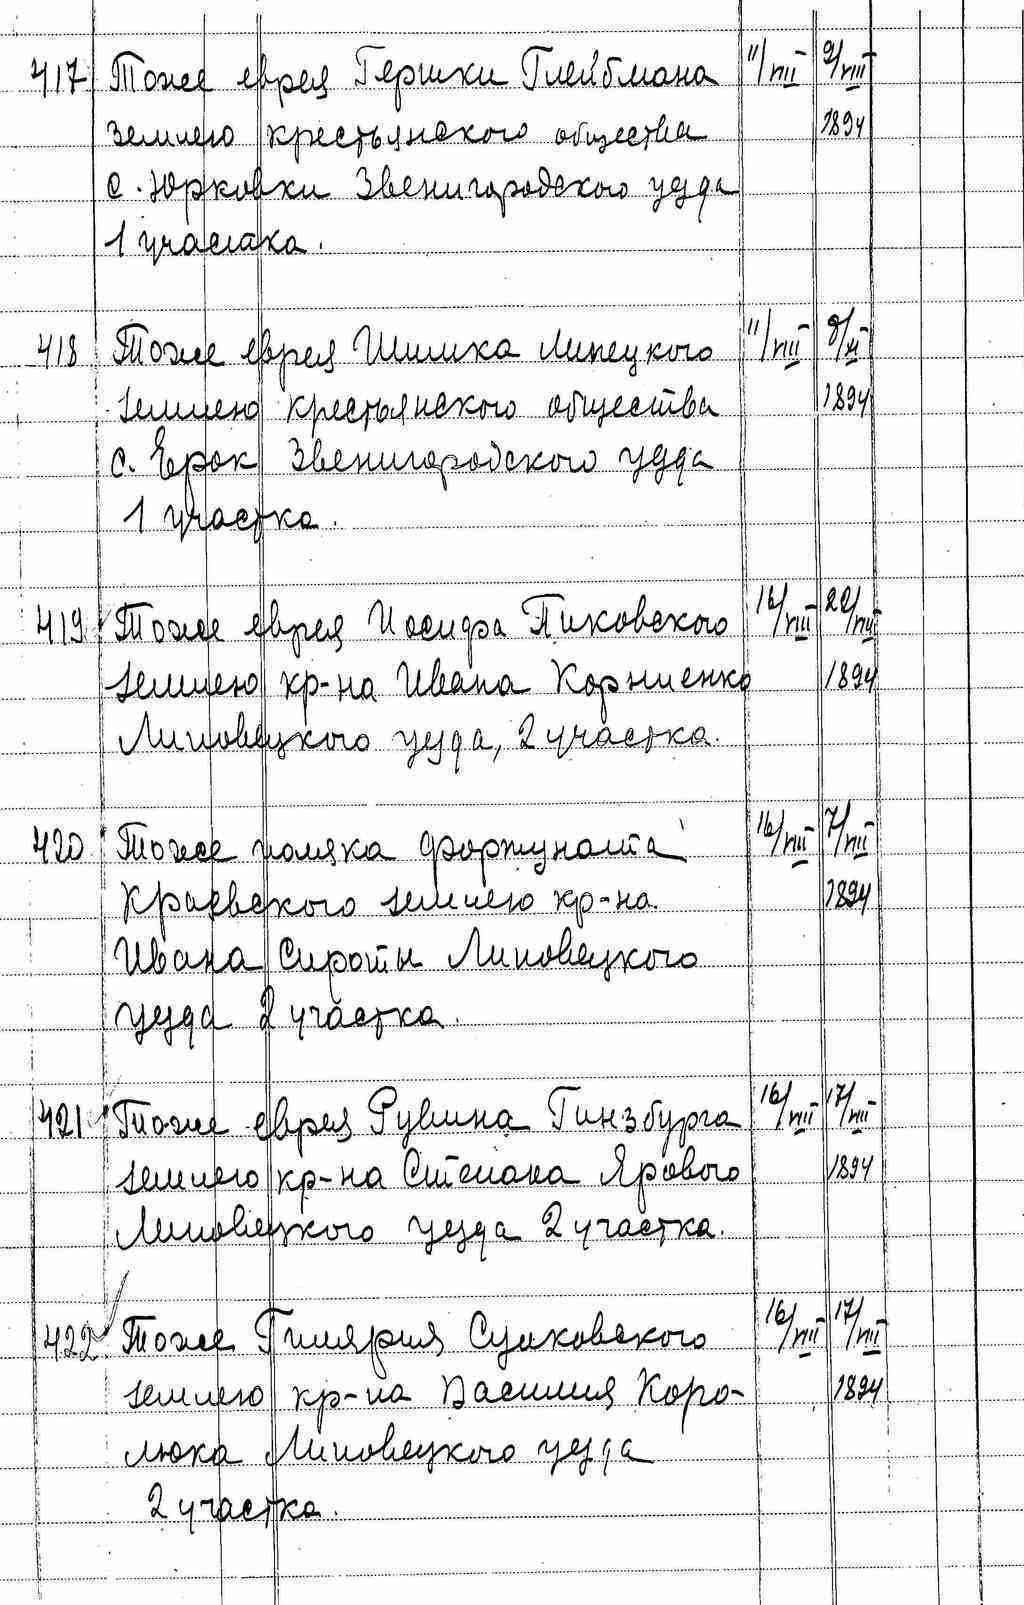 417 Тоже еврея Гершки Глейбмана 11/VIII 9/VIII
землею крестьянского общества 1894
с. Юрковки Звенигородского уезда
1 участка.
418 Тоже еврея Шлика Липецкого 11/VIII 9/XI
землею крестьянского общества 1894
с. Ерок Звенигородского уезда
1 участка.
419 Тоже еврея Иосифа Пиковского 16/VIII 22/VIII
землею кр-на Ивана Корниенко 1894
Липовецкого уезда, 2 участка.
420 Тоже поляка Фортуната 16/VIII 7/VIII
Краевского землею кр-на 1894
Ивана Сироты Липовецкого
уезда 2 участка.
421 Тоже еврея Рувина Гинзбурга 16/VIII 17/VIII
землею кр-на Степана Ярового 1894
Липовецкого уезда 2 участка.
422 Тоже Гилярия Сулковского 16/VIII 17/VIII
землею кр-на Василия Коро- 1894
люка Липовецкого уезда
2 участка.